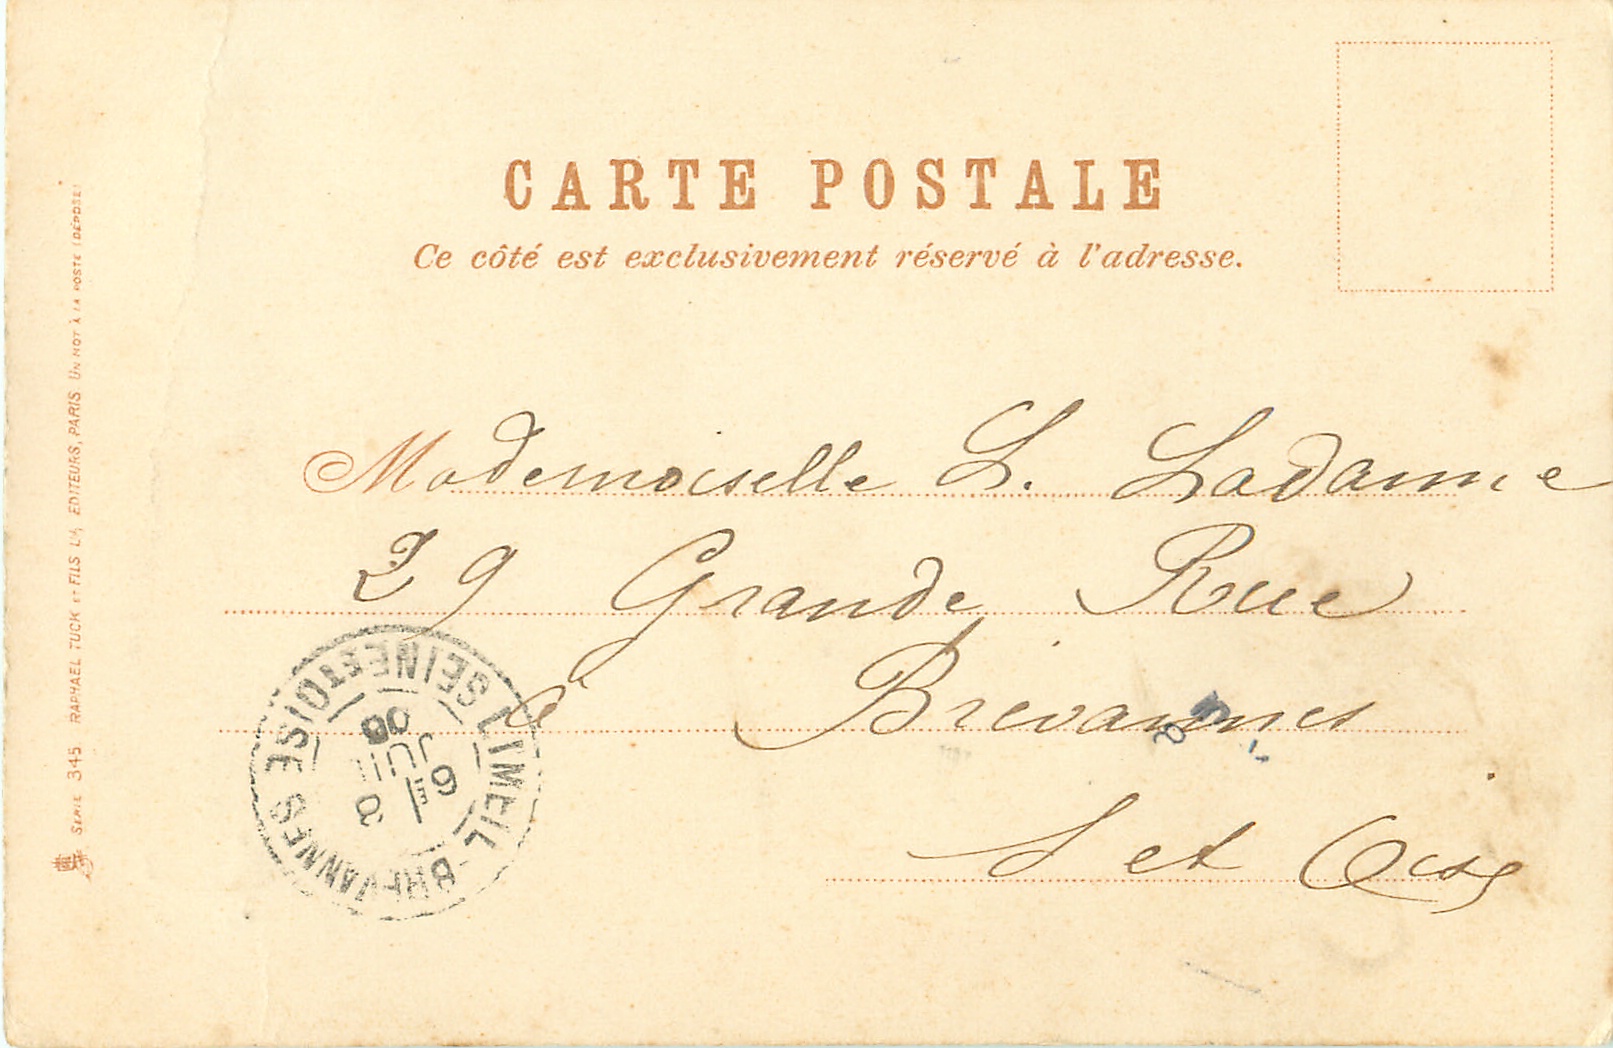 CARTE POSTALE
Ce côté est exclusivement réservé à l'adresse.
Mademoiselle L. Ladanne
29 Grande Rue
à Brevannes
S et Oise
SERIE 345 RAPHAEL TUCK ET FILS LD, EDITEURS, PARIS UN MOT À LA POSTE (DÉPOSE)
LIMEIL-BREVANNES SEINE ET OISE